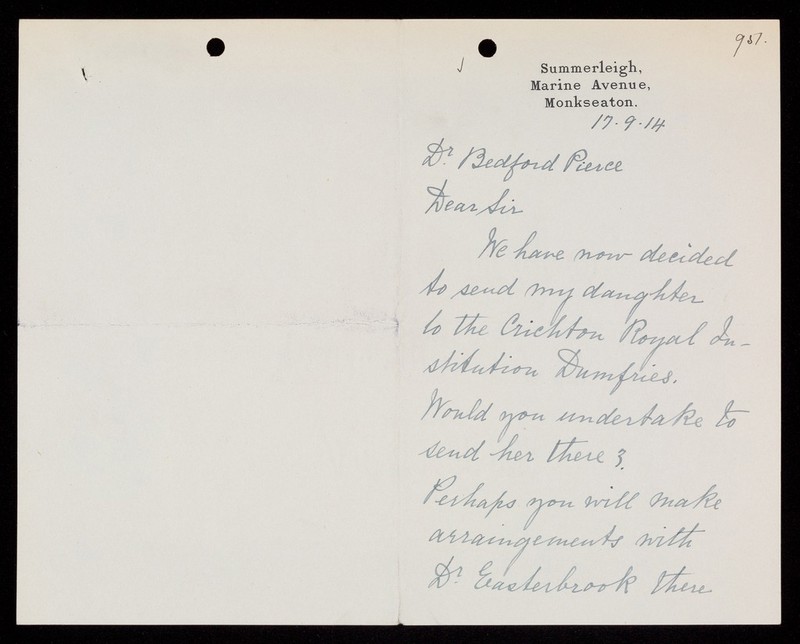 951.
Summerleigh,
Marine Avenue,
Monkseaton.
17.9.14
Dr. Bedford Pierce
Dear Sir
We have now decided
to send my daughter
to the Crichton Royal In-
stitution Dumfries.
Would you undertake to
send her there?
Perhaps you will make
arraingements with
Dr. Easterbrook there